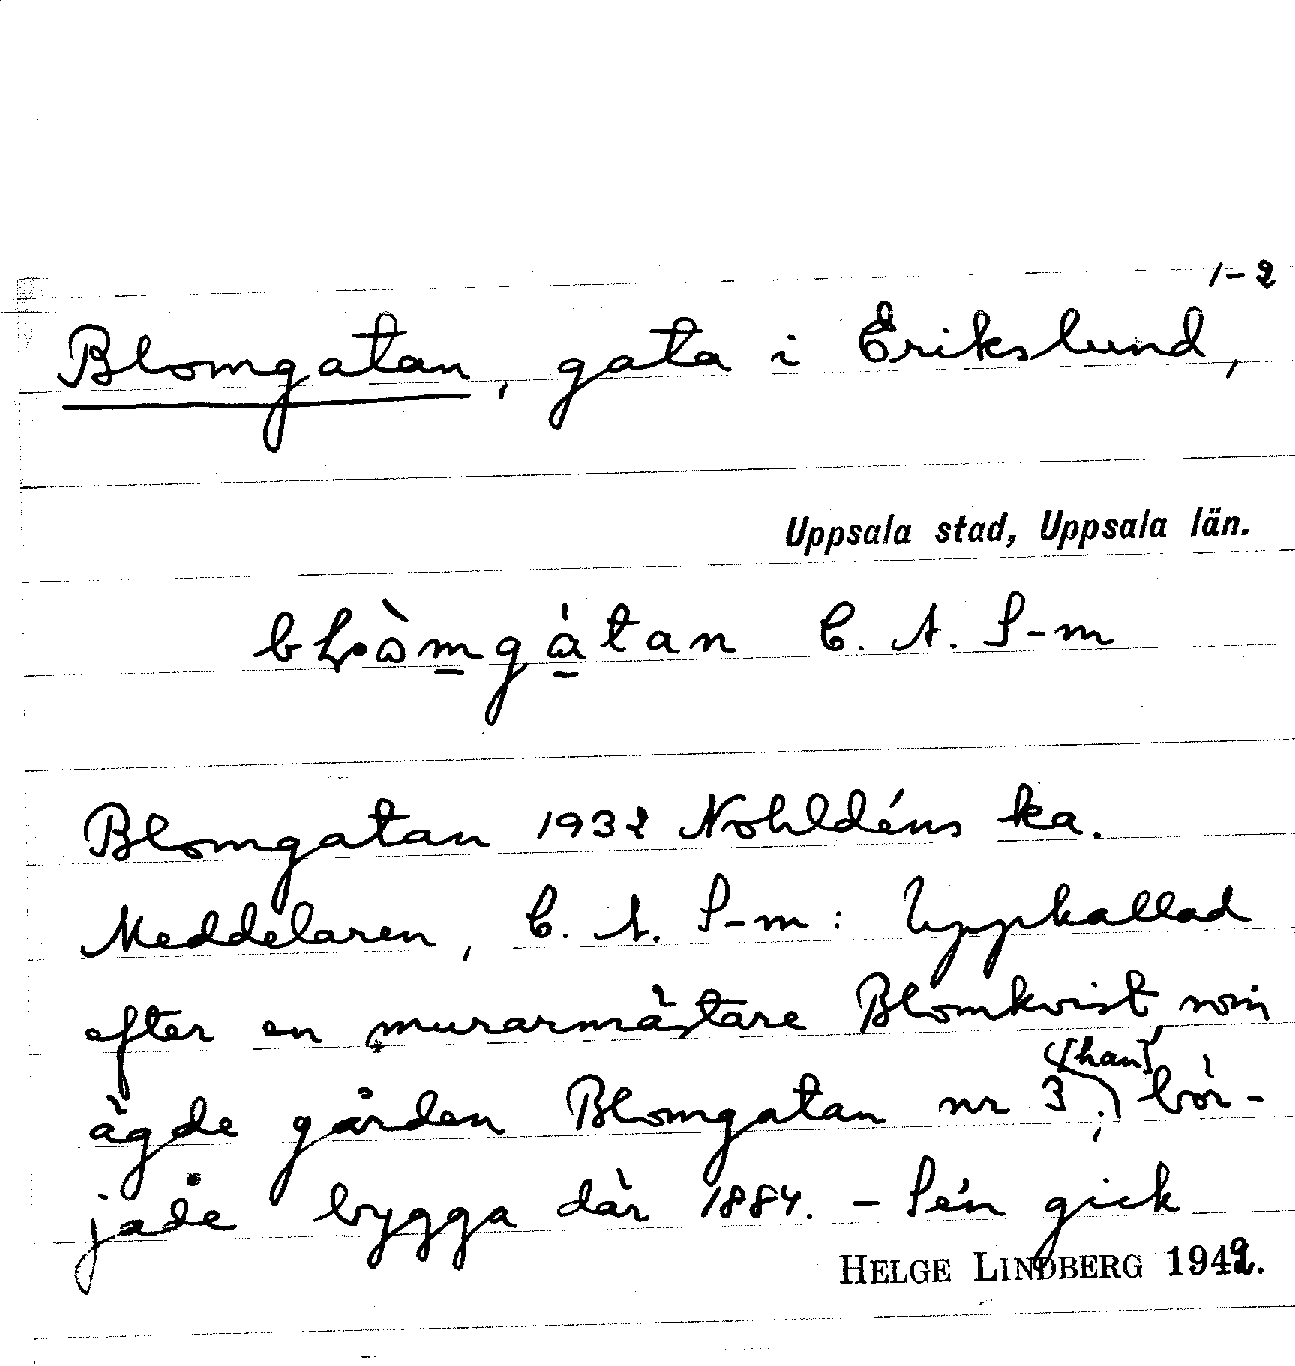 1-2
Blomgatan, gata i Erikslund,
Uppsala stad, Uppsala län.
C. A. S-m
Blomgatan 1932 Nohldéns ka.
Meddelaren, C. A. S-m: Uppkallad
efter en murarmästare Blomkvist, som
ägde gården Blomgatan nr 3; [han] bör-
jade bygga där 1884. - Sén gick
HELGE LINDBERG 1942.